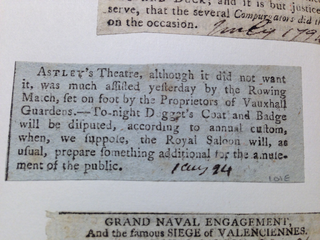 serve, that the several Compurators did th
on the occasion.
ASTLEY's Theatre, although it did not want
it, was much assisted yesterday by the Rowing
Match, set on foot by the Proprietors of Vauxhall
Guardens.—To-night Dogget's Coat and Badge
will be disputed, according to annual custom,
when, we suppose, the Royal Saloon will, as
usual, prepare something additional for the amuse-
ment of the public.
GRAND NAVAL ENGAGEMENT,
And the famous SIEGE of VALENCIENNES.